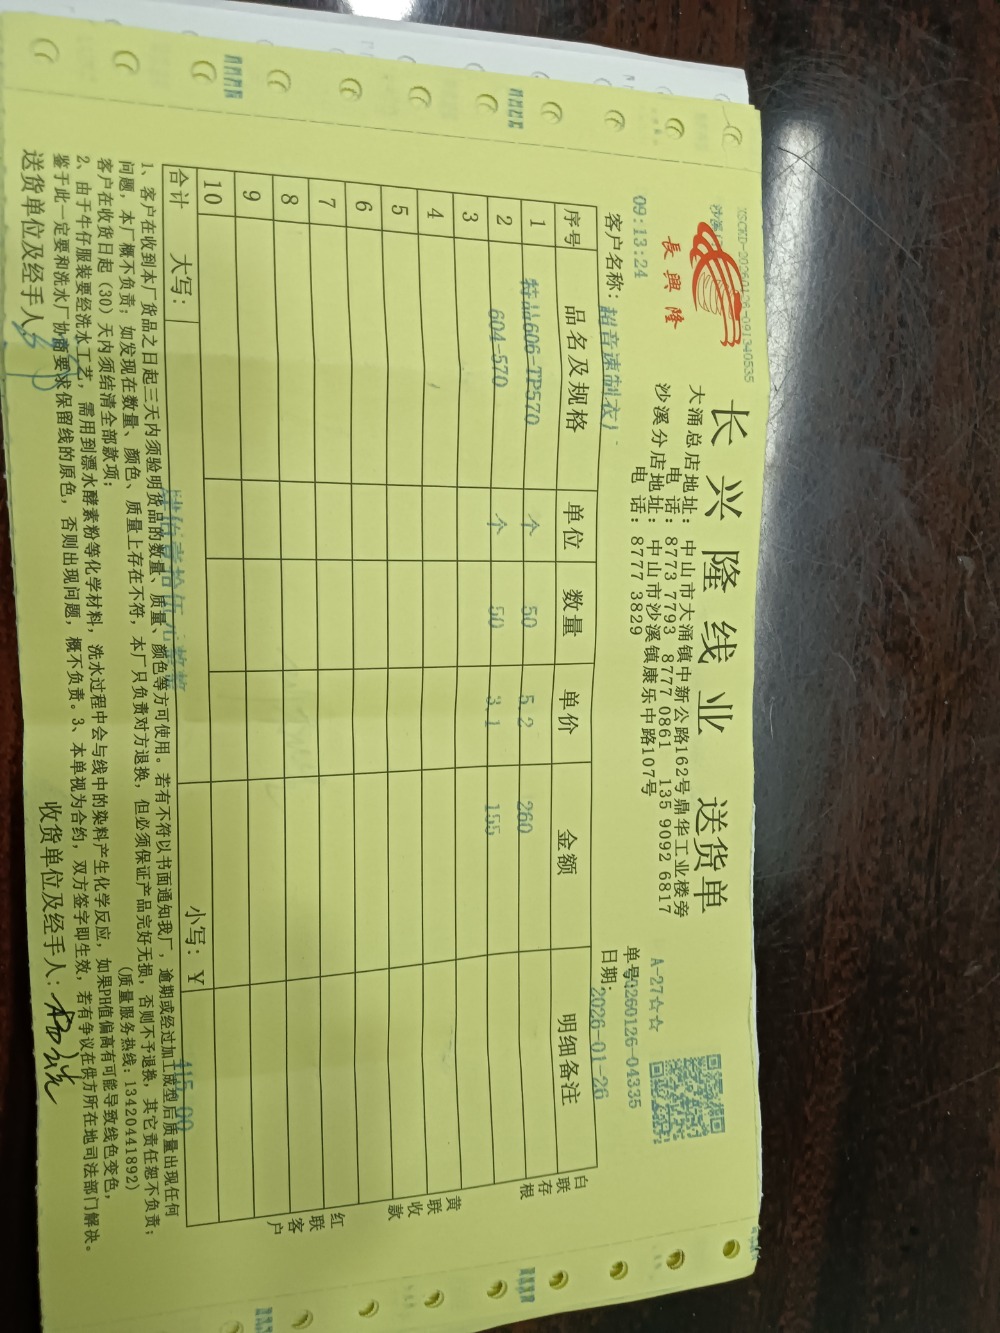 XSCKD-20260126-091340535
長興隆
长兴隆线业 送货单
大涌总店地址：中山市大涌镇中新公路162号鼎华工业楼旁
电 话：8773 7793 8777 0861 135 9092 6817
沙溪分店地址：中山市沙溪镇康乐中路107号
电 话：8777 3829
A-27☆☆
单号Q260126-04335
09:13:24
客户名称：超音速制衣厂
日期：2026-01-26
序号 品名及规格 单位 数量 单价 金额 明细备注
1 特品606-TP570 个 50 5.2 260
2 604-570 个 50 3.1 155
3
4
5
6
7
8
9
10
合计 大写： 肆佰壹拾伍元整 小写：￥ 415.00
白联存根
黄联收款
红联客户
1、客户在收到本厂货品之日起三天内须验明货品的数量、质量、颜色等方可使用。若有不符以书面通知我厂，逾期或经过加工成型后质量出现任何
问题，本厂概不负责；如发现在数量、颜色、质量上存在不符，本厂只负责对方退换，但必须保证产品完好无损，否则不予退换，其它责任恕不负责；
客户在收货日起（30）天内须结清全部款项； （质量服务热线：13420441892）
2、由于牛仔服装要经洗水工艺，需用到漂水酵素粉等化学材料，洗水过程中会与线中的染料产生化学反应，如果PH值偏高有可能导致线色变色，
鉴于此一定要和洗水厂协商要求保留线的原色，否则出现问题，概不负责。3、本单视为合约，双方签字即生效，若有争议在供方所在地司法部门解决。
送货单位及经手人：
收货单位及经手人：